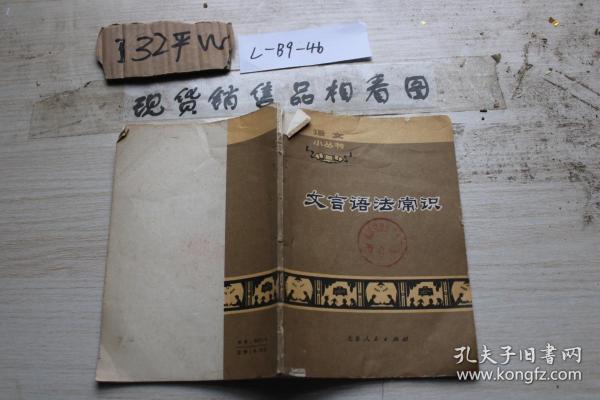 132平W
L-B9-46
现货销售品相看图
语文
小丛书
文言语法常识
北京人民出版社
孔夫子旧书网
www.kongfz.com